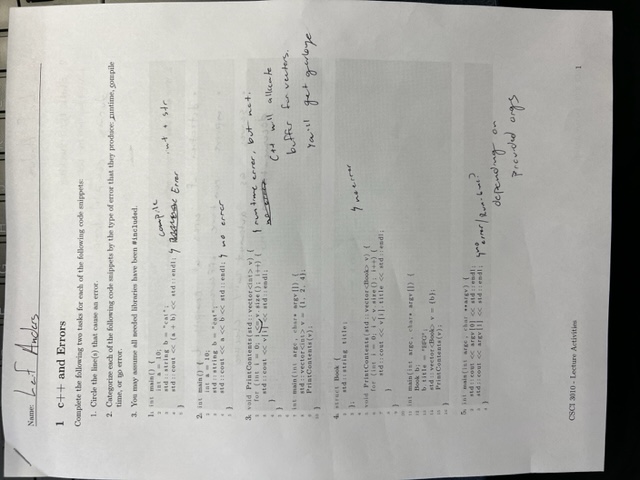 Name: Leif Anders
1 c++ and Errors
Complete the following two tasks for each of the following code snippets:
1. Circle the line(s) that cause an error.
2. Categorize each of the following code snippets by the type of error that they produce: runtime, compile
time, or no error.
3. You may assume all needed libraries have been #included.
1. int main() {
2 int a = 10;
3 std::string b = "cat";
4 std::cout << (a + b) << std::endl; compile Error int + str
5 }
2. int main() {
2 int a = 10;
3 std::string b = "cat";
4 std::cout << a << b << std::endl; no error
5 }
3. void PrintContents(std::vector<int> v) {
2 for (int i = 0; i <= v.size(); i++) { runtime error, but not.
3 std::cout << v[i] << std::endl; no error
4 } C++ will allocate
5 } buffer for vectors.
6 You'll get garbage
7 int main(int argc, char* argv[]) {
8 std::vector<int> v = {1, 2, 4};
9 PrintContents(v);
10 }
4. struct Book {
2 std::string title;
3 }; no error
4
5 void PrintContents(std::vector<Book> v) {
6 for (int i = 0; i < v.size(); i++) {
7 std::cout << v[i].title << std::endl;
8 }
9 }
10
11 int main(int argc, char* argv[]) {
12 Book b;
13 b.title = "BFG";
14 std::vector<Book> v = {b};
15 PrintContents(v);
16 }
5. int main(int argc, char **argv) {
2 std::cout << argv[0] << std::endl;
3 std::cout << argv[1] << std::endl; no error/Run-time?
4 } depending on
provided args
CSCI 3010 - Lecture Activities
1